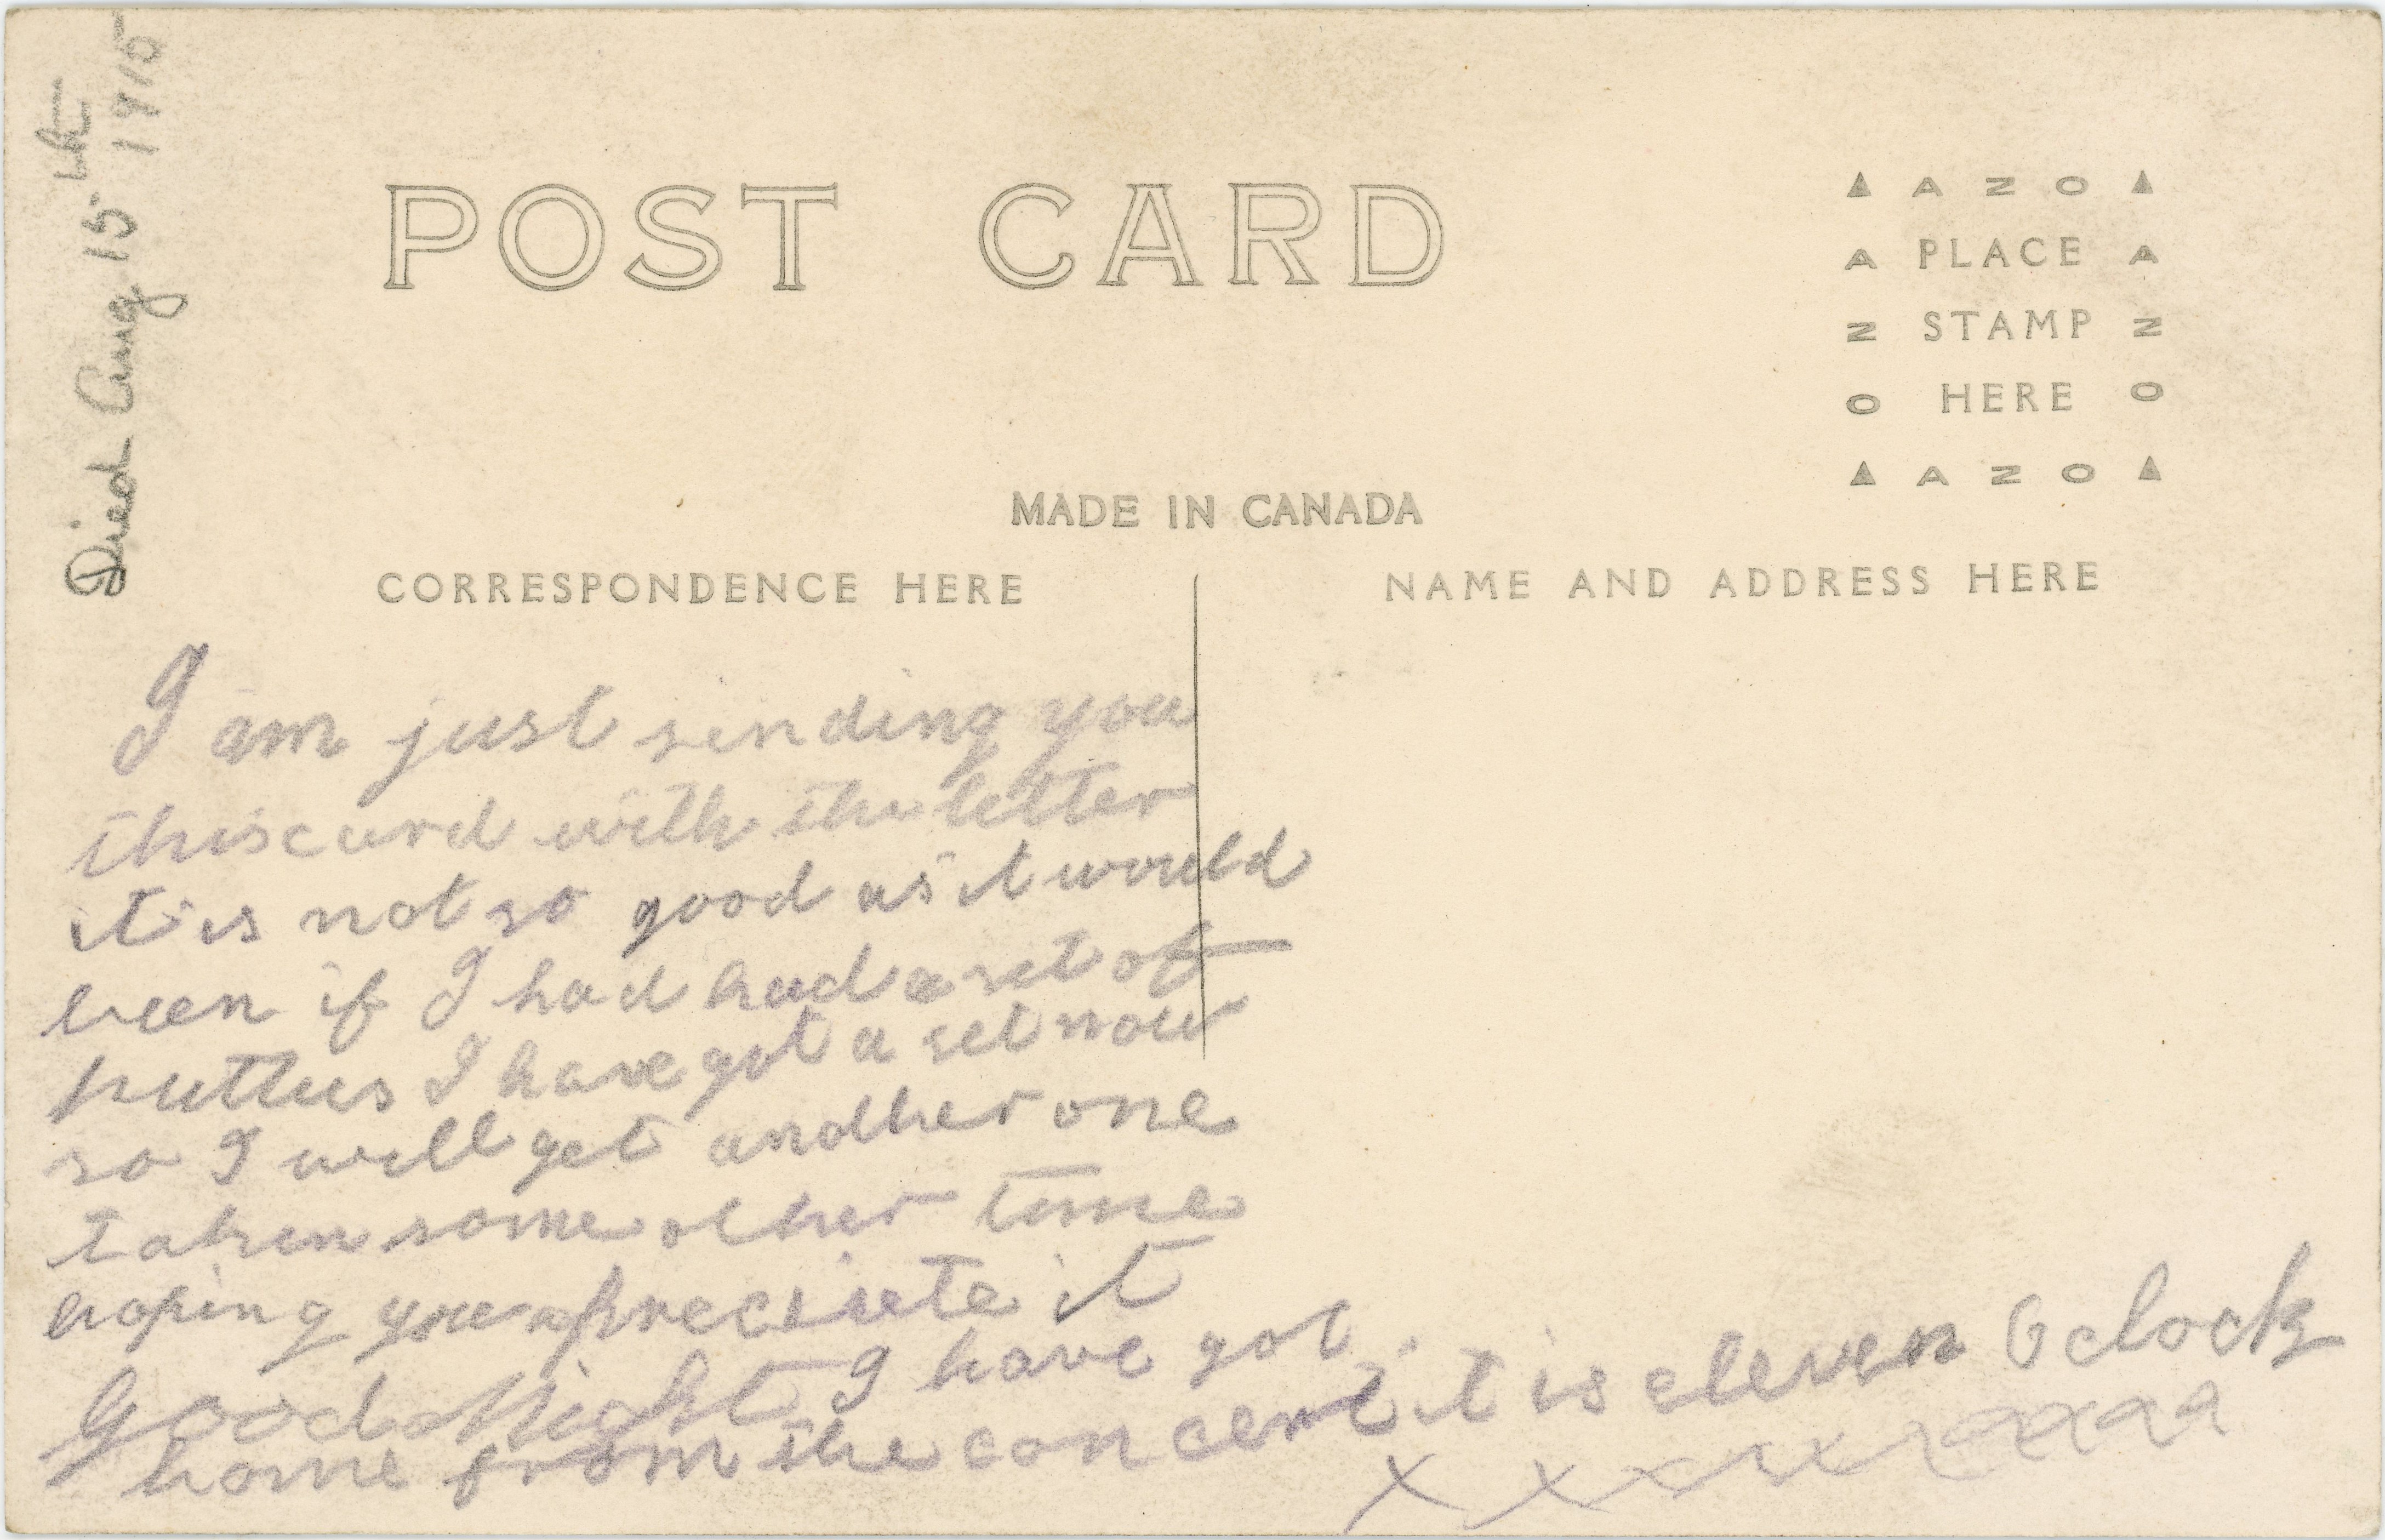 Died Aug 15th
1915
POST CARD
▲ A Z O ▲
A PLACE A
Z STAMP Z
O HERE O
▲ A Z O ▲
MADE IN CANADA
CORRESPONDENCE HERE
NAME AND ADDRESS HERE
I am just sending you
this card with the letter
it is not so good as it would
been if I had had a set of
puttus I have got a set now
so I will get another one
taken some other time
hoping you apreciate it
Good Night I have got
home from the concert it is eleven O clock
x x x x x